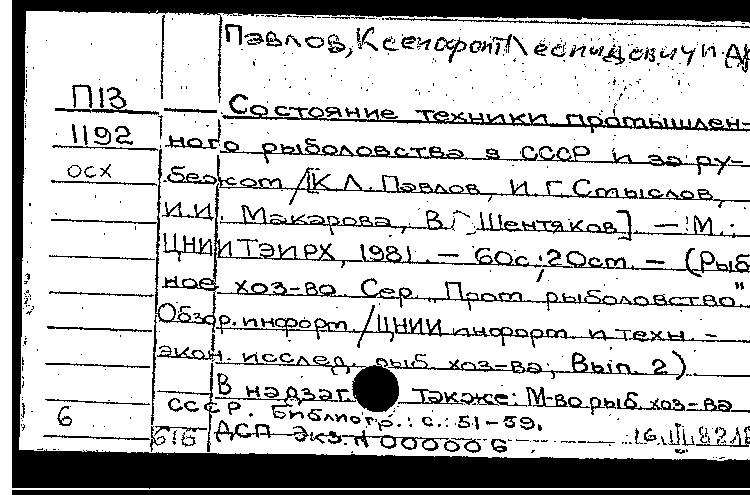 Павлов, Ксенофонт Леонидович и др
П13
Состояние техники промышлен-
1192
ного рыболовства в СССР и за ру-
осх
бежом /[К. Л. Павлов, И. Г. Смыслов,
И.И. Макарова, В.Г. Шентяков] — М.:
ЦНИИТЭИРХ, 1981. — 60с.; 20см. — (Рыб
ное хоз-во Сер. "Пром рыболовство"
Обзор. информ. / ЦНИИ информ. и техн.-
экон. исслед. рыб. хоз-ва; Вып. 2).
В надзаг. также: М-во рыб. хоз-ва
6 СССР. Библиогр.: с.: 51-59.
616 ДСП Экз.N 000006 16.III.82